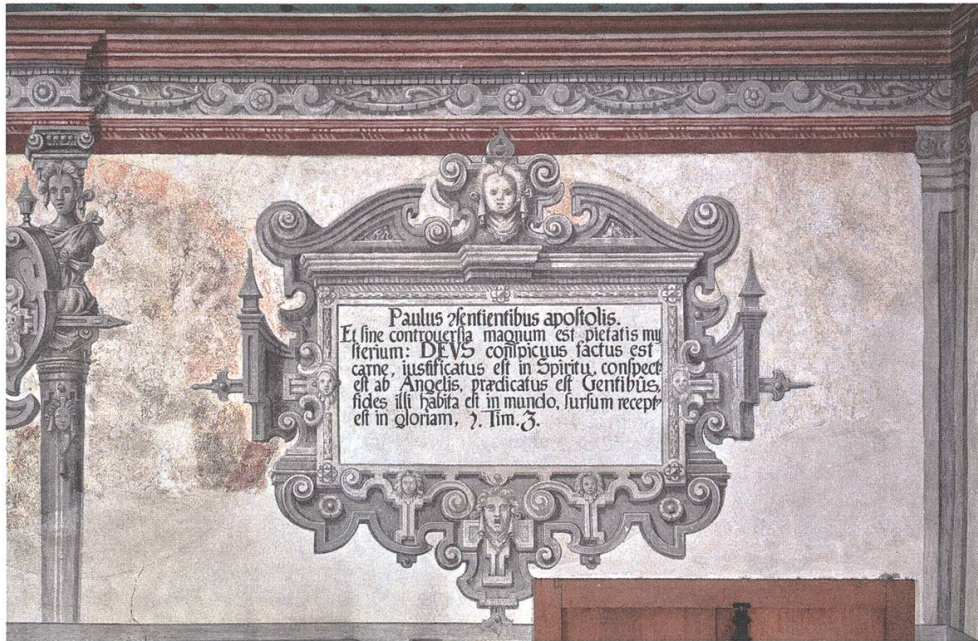 Paulus ɔsentientibus apostolis.
Et sine controuersia magnum est pietatis my
sterium: DEVS conspicuus factus est
carne, iustificatus est in Spiritu, conspect⁹
est ab Angelis, prædicatus est Gentibus,
fides illi habita est in mundo, sursum recept⁹
est in gloriam, 1. Tim. 3.